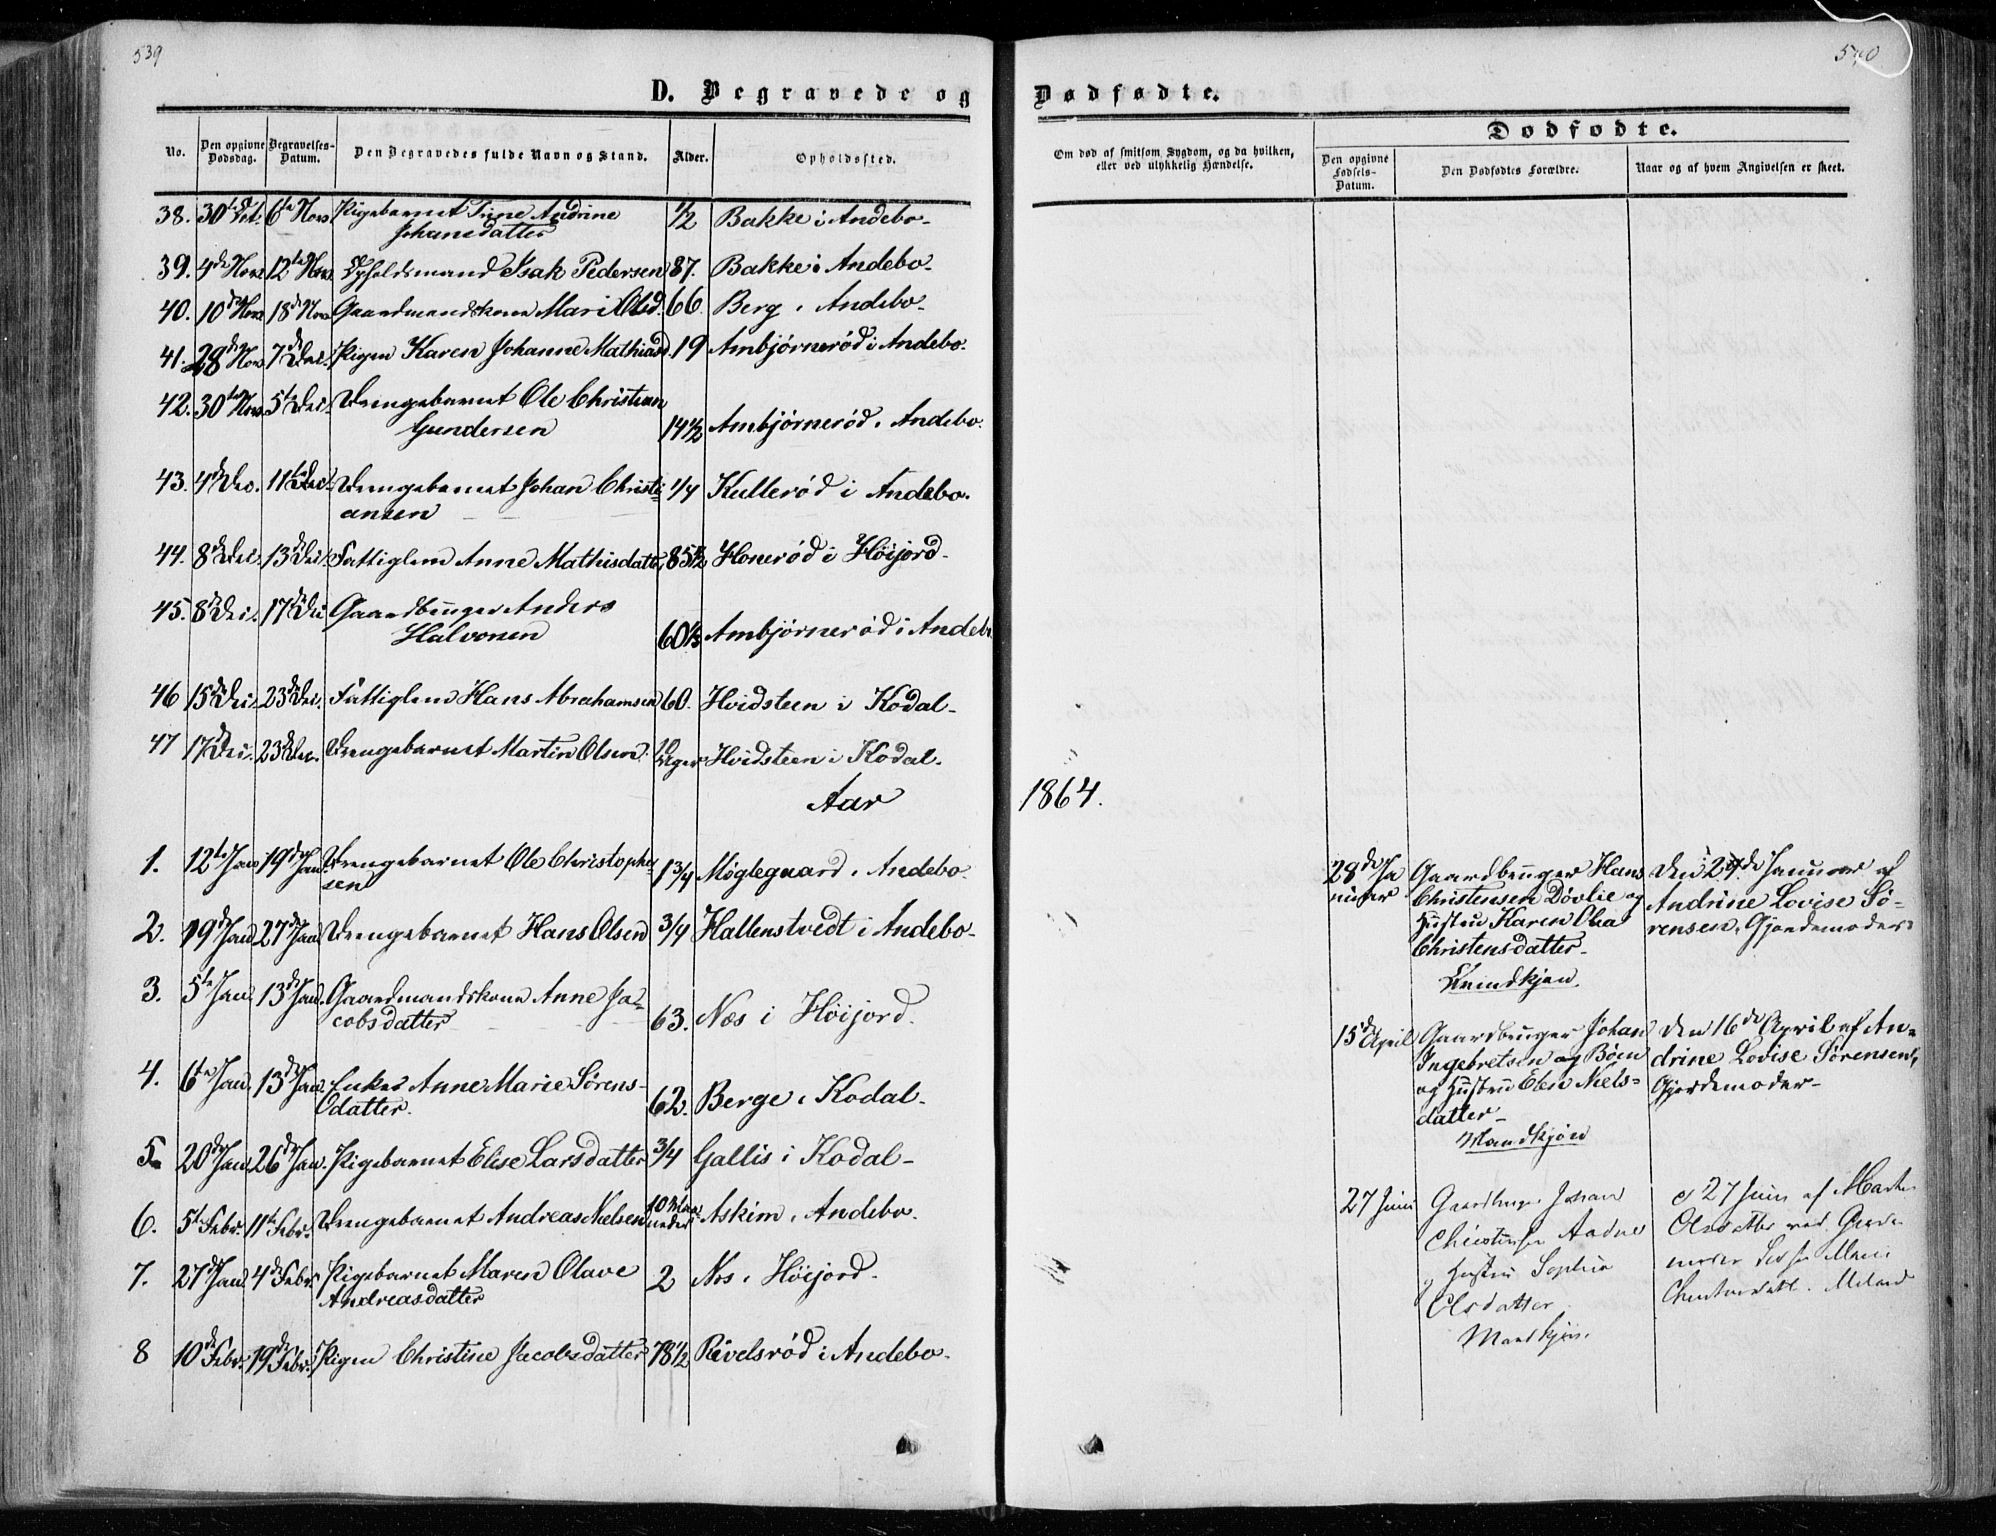 539
540
D. Begravede og
Dødfødte.
No.
Den opgivne Dødsdag.
Begravelses-Datum.
Den Begravedes fulde Navn og Stand.
Alder.
Opholdssted.
Om død af smitsom Sygdom, og da hvilken, eller ved ulykkelig Hændelse.
Dødfødte.
Den opgivne Fødsels-Datum.
Den Dødfødtes Forældre.
Naar og af hvem Angivelsen er skeet.
38. 30te Oct. 6te Nov. Pigebarnet Trine Andrine 1/2 Bakke i Andebo.
Johansdatter
39. 4de Nov. 12te Nov. Opholdsmand Isak Pedersen 87. Bakke i Andebo.
40. 10de Nov. 18de Nov. Gaardmandskone Mari Olsd. 66. Berg i Andebo.
41. 28de Nov. 7de Dec. Pigen Karen Johanne Mathiasd. 19 Ambjørnerød i Andebo.
42. 30te Nov. 5te Dec. Drengebarnet Ole Christian
Gundersen 14 1/2 Ambjørnerød i Andebo.
43. 4de Dec. 11te Dec. Drengebarnet Johan Christi- 1/4 Kullerød i Andebo.
ansen
44. 8de Dec. 13de Dec. Fattiglem Anne Mathisdatt. 85 1/2 Honerød i Høijord.
45. 8de Dec. 17de Dec. Gaardbruger Anders
Halvorsen 60 1/3 Ambjørnerød i Andebo
46 15de Dec. 23de Dec. Fattiglem Hans Abrahamsen 60. Hvidsteen i Kodal.
47 17de Dec. 23de Dec. Drengebarnet Martin Olsen. 10 Uger Hvidsteen i Kodal.
Aar 1864.
1. 12te Jan 19de Jan. Drengebarnet Ole Christopher-
sen 1 3/4 Møglegaard i Andebo.
2. 19de Jan 27de Jan. Drengebarnet Hans Olsen 3/4 Hallenstvedt i Andebo.
3. 5te Jan. 13de Jan. Gaardmandskone Anne Ja-
cobsdatter 63. Næs i Høijord.
4. 6te Jan. 13de Jan. Enke Anne Marie Sørens-
datter. 62. Berge i Kodal.
5. 20de Jan. 26de Jan. Pigebarnet Elise Larsdatter 3/4 Gallis i Kodal.
6. 5te Febr. 11te Febr. Drengebarnet Andreas Nielsen 10 Maaneder Askim i Andebo.
7. 27de Jan. 4de Febr. Pigebarnet Maren Olave 2 Næs i Høijord.
Andreasdatter
8 10de Febr. 19de Febr. Pigen Christine Jacobsdatter 78 1/2 Rivelsrød i Andebo.
28de Ja-
nuar
Gaardbruger Hans
Christensen Døvlie og
Hustru Karen Olea
Christensdatter.
Kvindkjøn.
Den 29de Januar af
Andrine Lovise Sø-
rensen, Gjordemoder
15de April
Gaardbruger Johan
Ingebretsen og Bøen
og Hustru Elen Niels-
datter.
Mandkjøn
Den 16de April af An-
drine Lovise Sørensen,
Gjordemoder.
27 Juni
Gaardbruger Johan
Christensen Aadne
og Hustru Sophie
Olsdatter
Mandkjøn.
d 27 Juni af
Olsdatter ved Gjorde-
moder